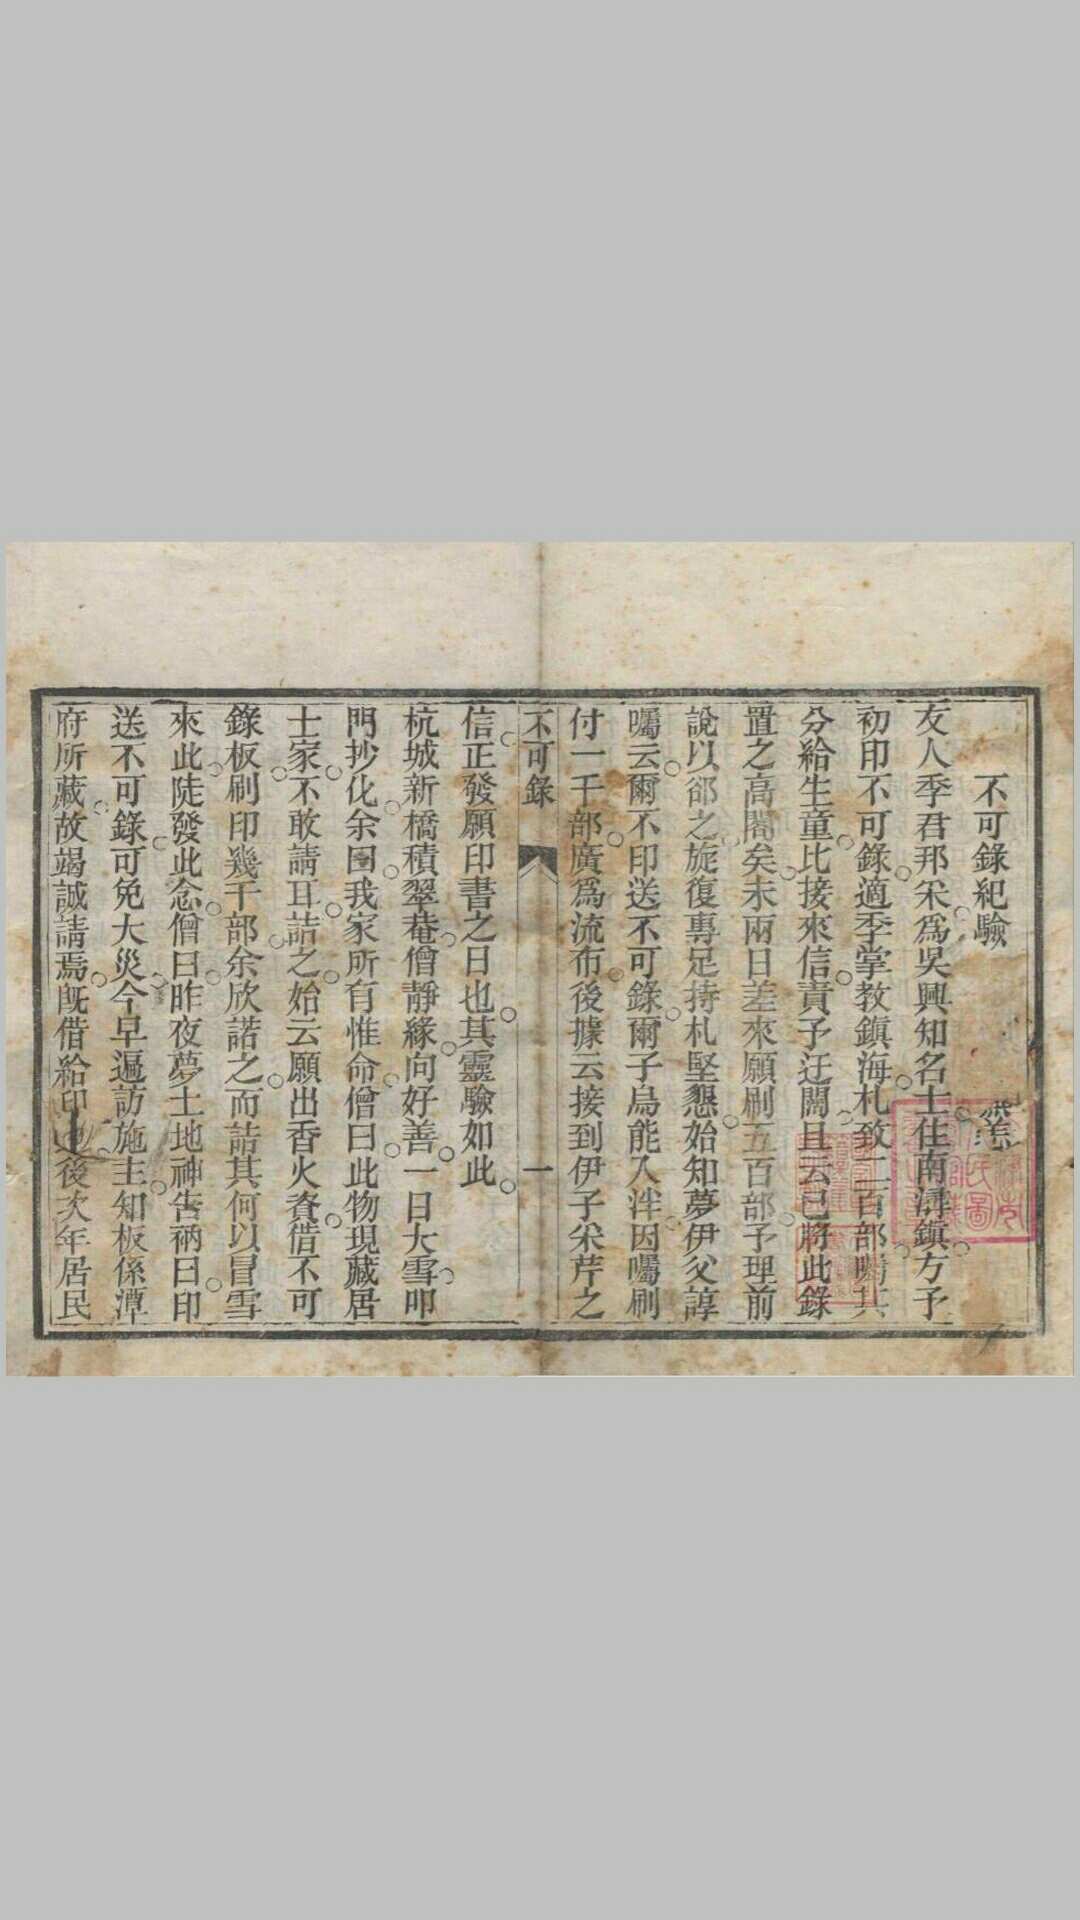 不可錄紀驗
友人季君邦宋爲吳興知名士住南潯鎮方予
初印不可錄適季掌教鎮海札致二百部囑其
分給生童比接來信責予迂闊且云已將此錄
置之高閣矣未兩日差來願刷五百部予理前
說以郤之旋復專足持札堅懇始知夢伊父諄
囑云爾不印送不可錄爾子烏能入泮因囑刷
付一千部廣爲流布後據云接到伊子采芹之
不可錄 一
信正發願印書之日也其靈驗如此
杭城新橋積翠菴僧靜緣向好善一日大雪叩
門抄化余因我家所有惟命僧曰此物現藏居
士家不敢請耳詰之始云願出香火資借不可
錄板刷印幾千部余欣諾之而詰其何以冒雪
來此陡發此念僧曰昨夜夢土地神告衲曰印
送不可錄可免大災今早遍訪施主知板係潭
府所藏故竭誠請焉旣借給印後次年居民